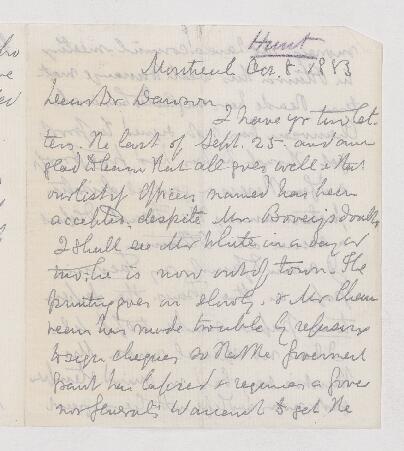 Hunt
Montreal Oct. 8. 1883
Dear Dr Dawson
I have yr two let-
ters. The last of Sept. 25 and am
glad to learn that all goes well & that
our list of officers named has been
accepted, despite Mr Bovey's doubts
I shall see Mr White in a day or
two. he is now out of town. The
printing goes on slowly. & Mr
has made trouble by refusing
to sign cheques so that the Goverment
grant has lapsed & requires a Gover
nor General's warrant to get the